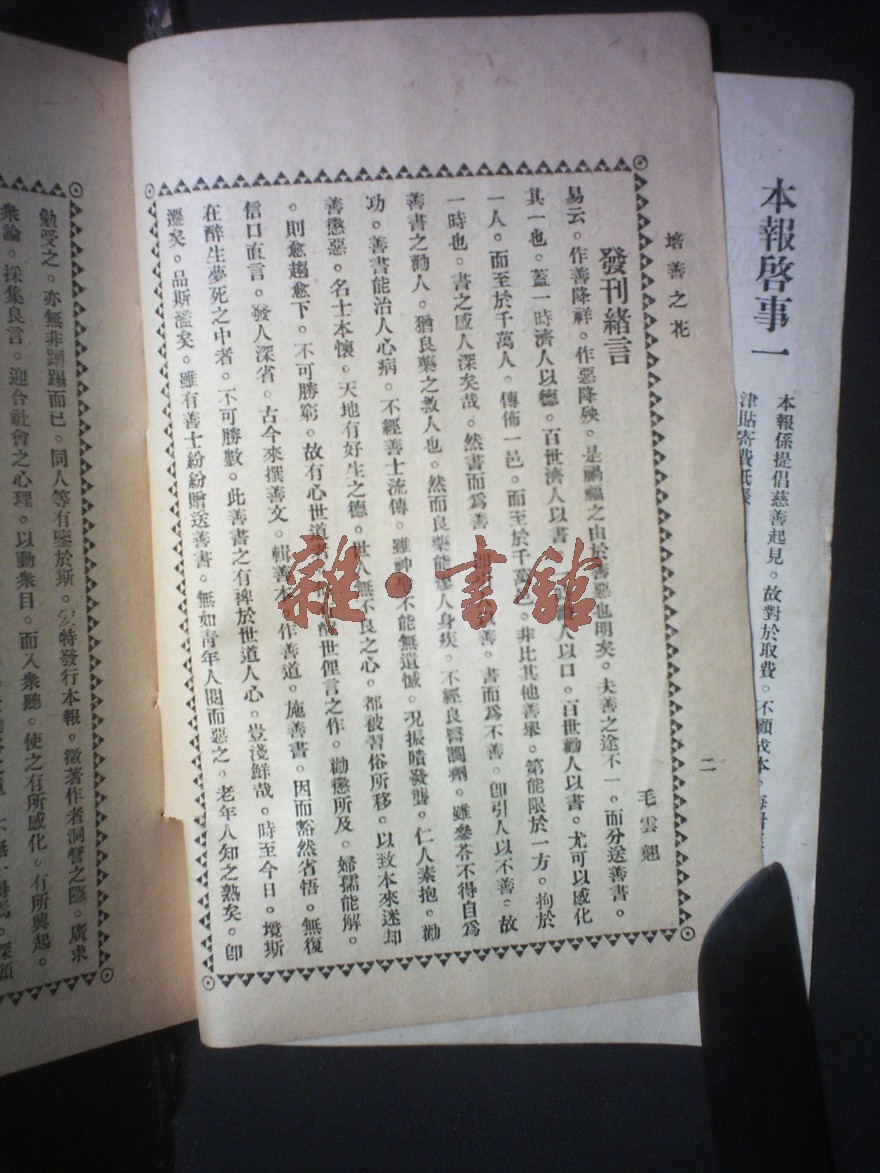 本報啓事一
本報係提倡慈善起見。故對於取費。不顧成本。
津貼寄費
培善之花
二
發刊緒言
毛雲翹
易云。作善降祥。作惡降殃。是禍福之由於善惡也明矣。夫善之途不一。而分送善書。
其一也。蓋一時濟人以德。百世濟人以書。人以口。百世勸人以書。尤可以感化
一人。而至於千萬人。傳佈一邑。而至於千萬邑。非比其他善果。第能限於一方。拘於
一時也。書之感人深矣哉。然書而爲善。善。書而爲不善。卽引人以不善。故
善書之勸人。猶良藥之救人也。然而良藥能人身疾。不經良醫調劑。雖參苓不得自爲
功。善書能治人心病。不經善士流傳。雖神不能無遺憾。况振聵發聾。仁人素抱。勸
善懲惡。名士本懷。天地有好生之德。世人無不良之心。都被習俗所移。以致本來迷却
。則愈趨愈下。不可勝窮。故有心世道世俚言之作。勸懲所及。婦孺能解。
信口直言。發人深省。古今來撰善文。輯善本。作善道。施善書。因而豁然省悟。無復
在醉生夢死之中者。不可勝數。此善書之有裨於世道人心。豈淺鮮哉。時至今日。境斯
遷矣。品斯濫矣。雖有善士紛紛贈送善書。無如青年人閱而惡之。老年人知之熟矣。卽
雜·書館
勉受之。亦無非蹧蹋而已。同人等有鑒於斯。特發行本報。徵著作者洞瞥之隱。廣求
衆論。採集良言。迎合社會之心理。以動衆目。而入衆聽。使之有所感化。有所興起。